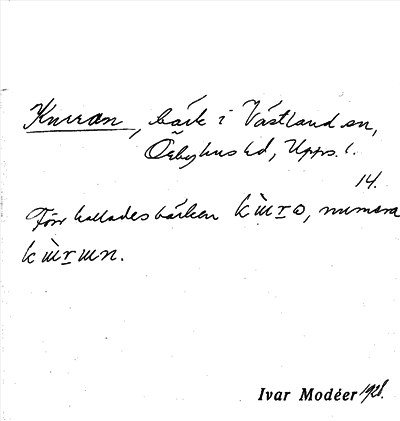 Knurran, bäck i Västland sn,
Örbyhus hd, Upps. l.
14.
Förr kallades bäcken kɯ̀ro, numera
kɯ̀rɯn.
Ivar Modéer 1928.